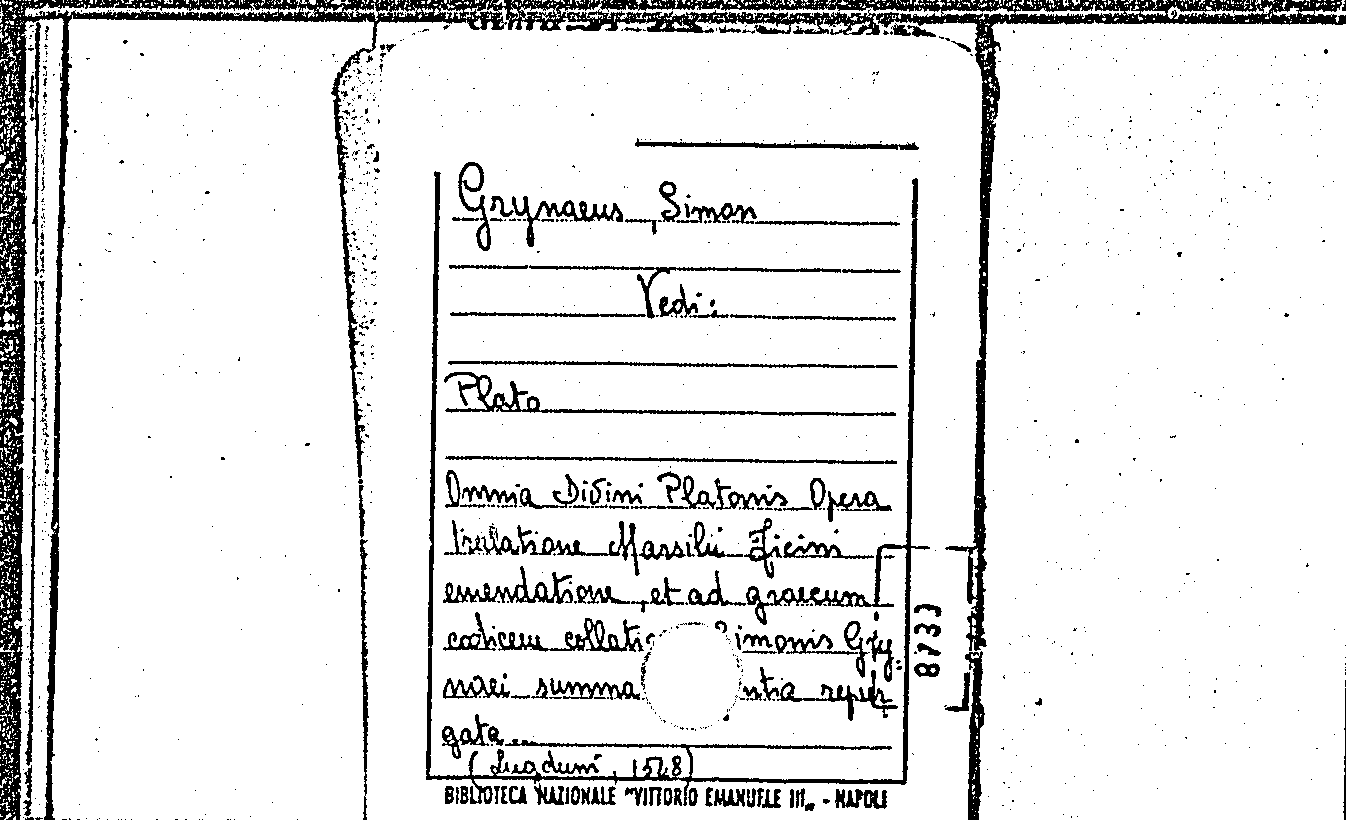 Grynaeus, Simon
Vedi:
Plato
Omnia Divini Platonis Opera
tralatione Marsilii Ficini
emendatione, et ad graecum
codicem collatio imonis Gry
naei summa ntia repur
gata...
(Lugduni, 1548)
BIBLIOTECA NAZIONALE "VITTORIO EMANUELE III„ - NAPOLI
8733